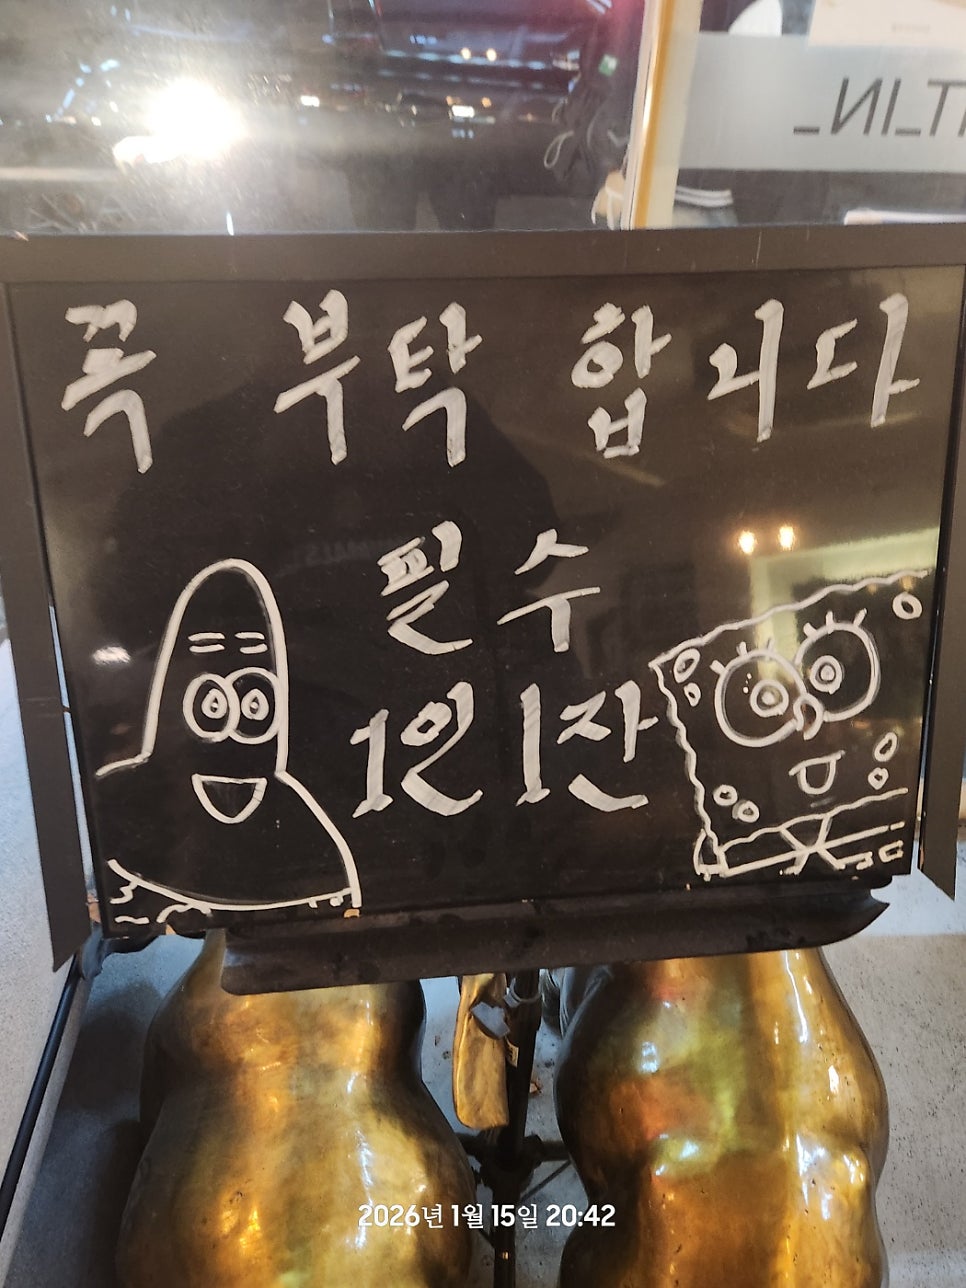 T_IN_
꼭 부탁 합니다
필수
1인 1잔
2026년 1월 15일 20:42